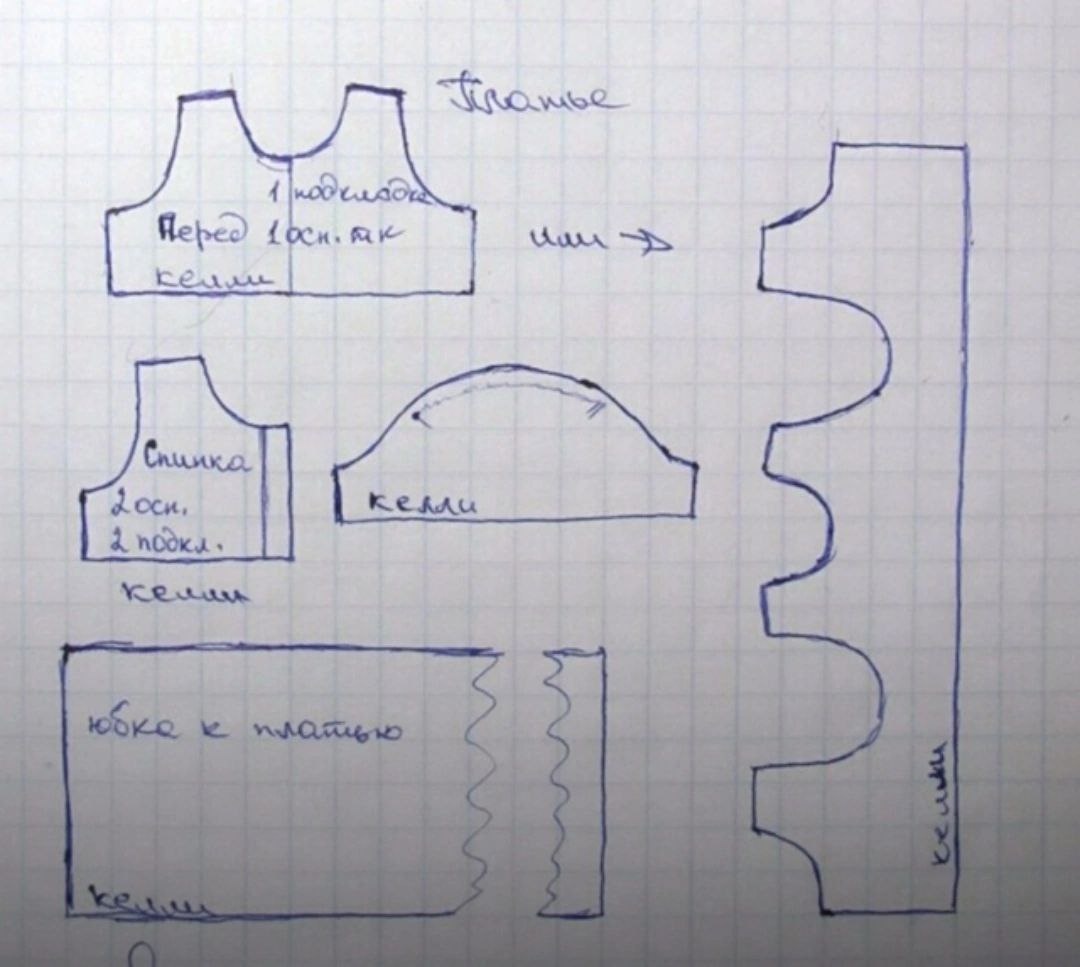 Платье
1 подкладка
Перед 1 осн. тк
келли
или →
Спинка
2 осн.
2 подкл.
келли
келли
юбка к платью
келли
келли